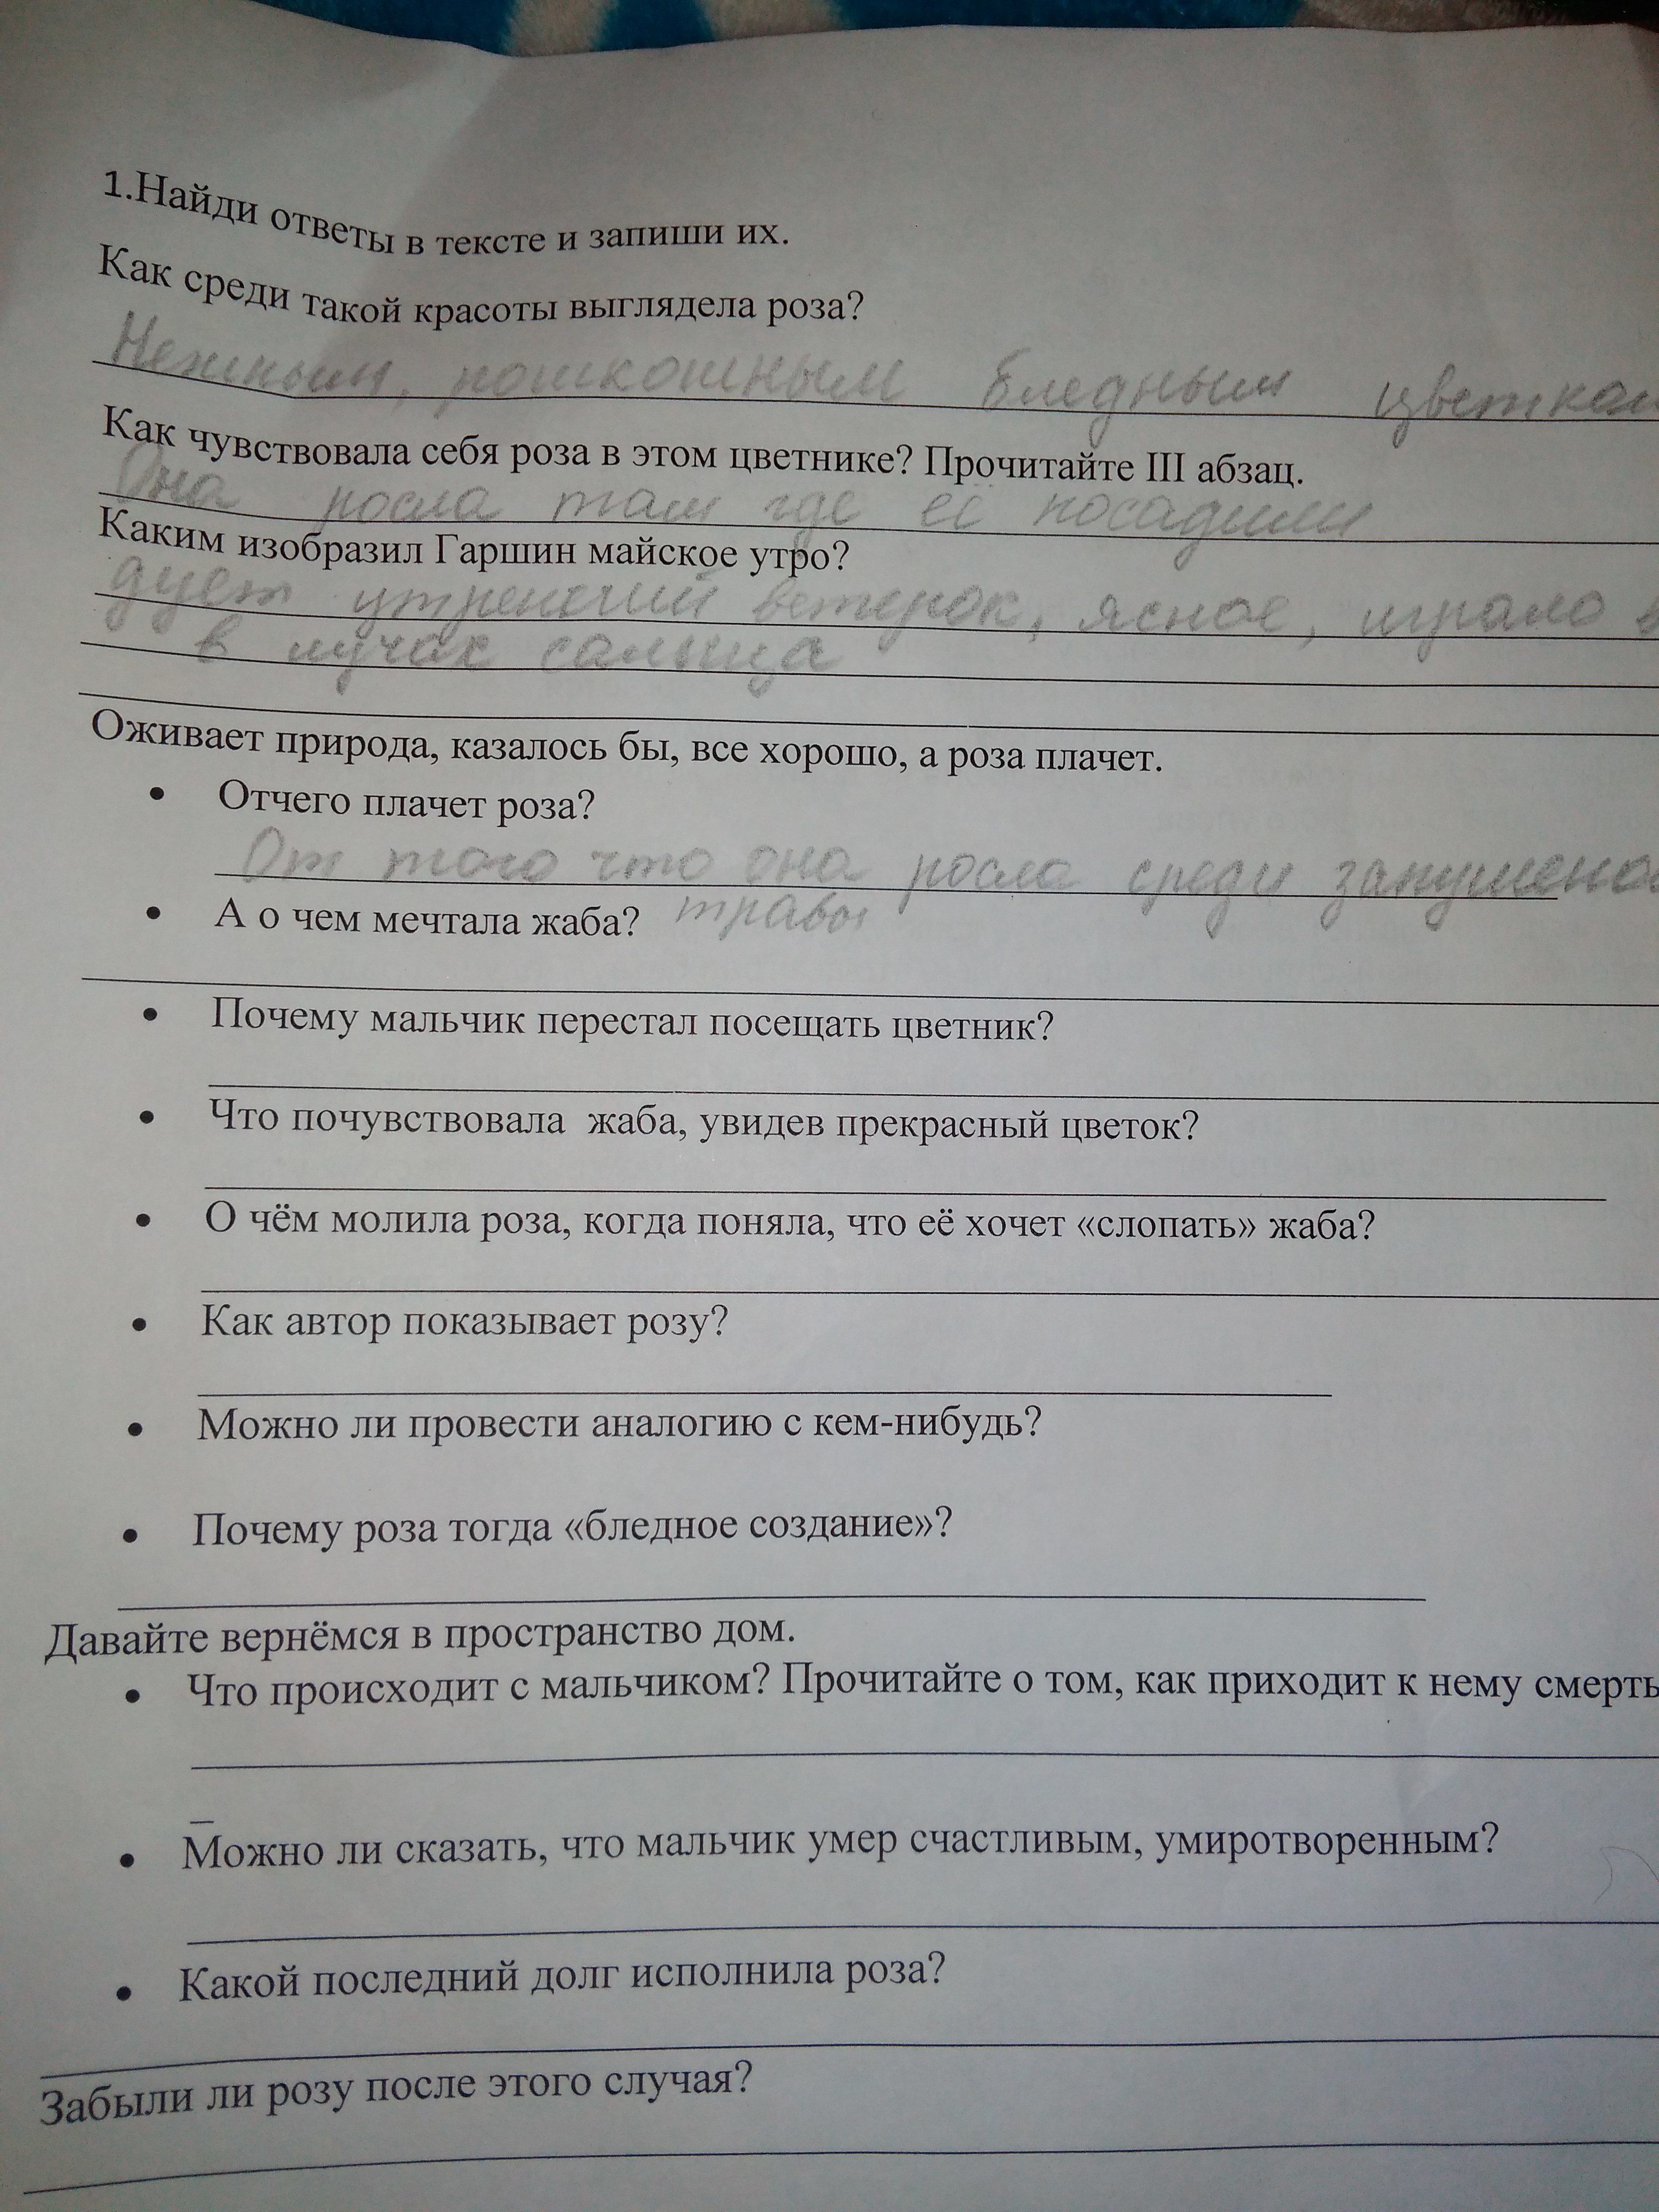 1.Найди ответы в тексте и запиши их.
Как среди такой красоты выглядела роза?
Нежным, рошкошным бледным цветком
Как чувствовала себя роза в этом цветнике? Прочитайте III абзац.
Она росла там где её посадили
Каким изобразил Гаршин майское утро?
дует утренний ветерок, ясное, играло в
в лучах салнца
Оживает природа, казалось бы, все хорошо, а роза плачет.
• Отчего плачет роза?
От того что она росла среди запушеной
травы
• А о чем мечтала жаба?
• Почему мальчик перестал посещать цветник?
• Что почувствовала жаба, увидев прекрасный цветок?
• О чём молила роза, когда поняла, что её хочет «слопать» жаба?
• Как автор показывает розу?
• Можно ли провести аналогию с кем-нибудь?
• Почему роза тогда «бледное создание»?
Давайте вернёмся в пространство дом.
• Что происходит с мальчиком? Прочитайте о том, как приходит к нему смерть
• Можно ли сказать, что мальчик умер счастливым, умиротворенным?
• Какой последний долг исполнила роза?
Забыли ли розу после этого случая?